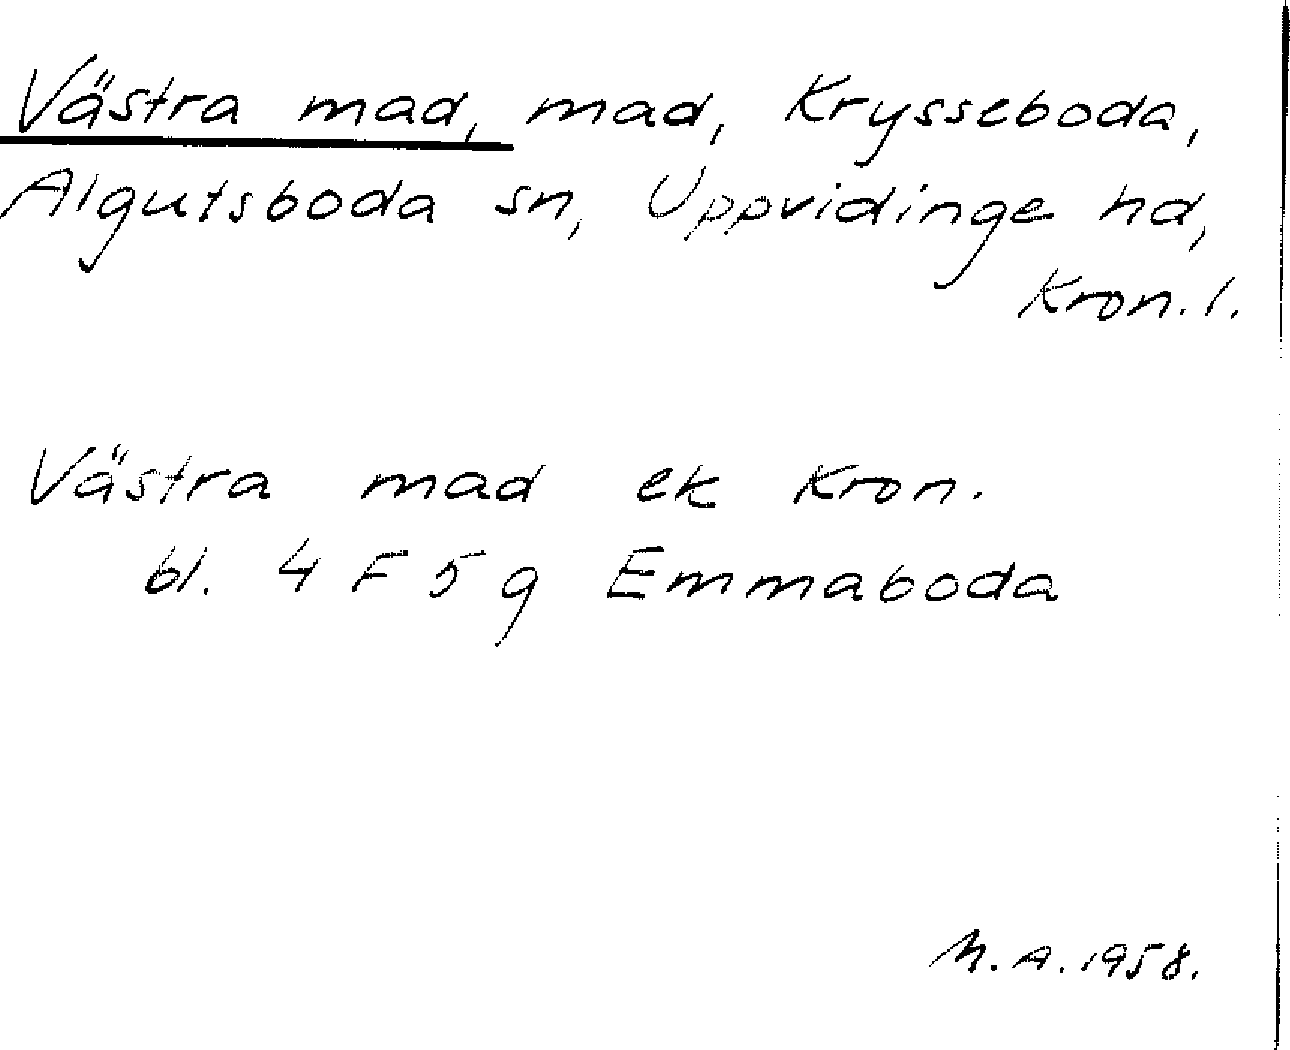 Västra mad, mad, Krysseboda,
Algutsboda sn, Uppvidinge hd,
Kron. l.
Västra mad ek Kron.
bl. 4 F 5 g Emmaboda
M. A. 1958.